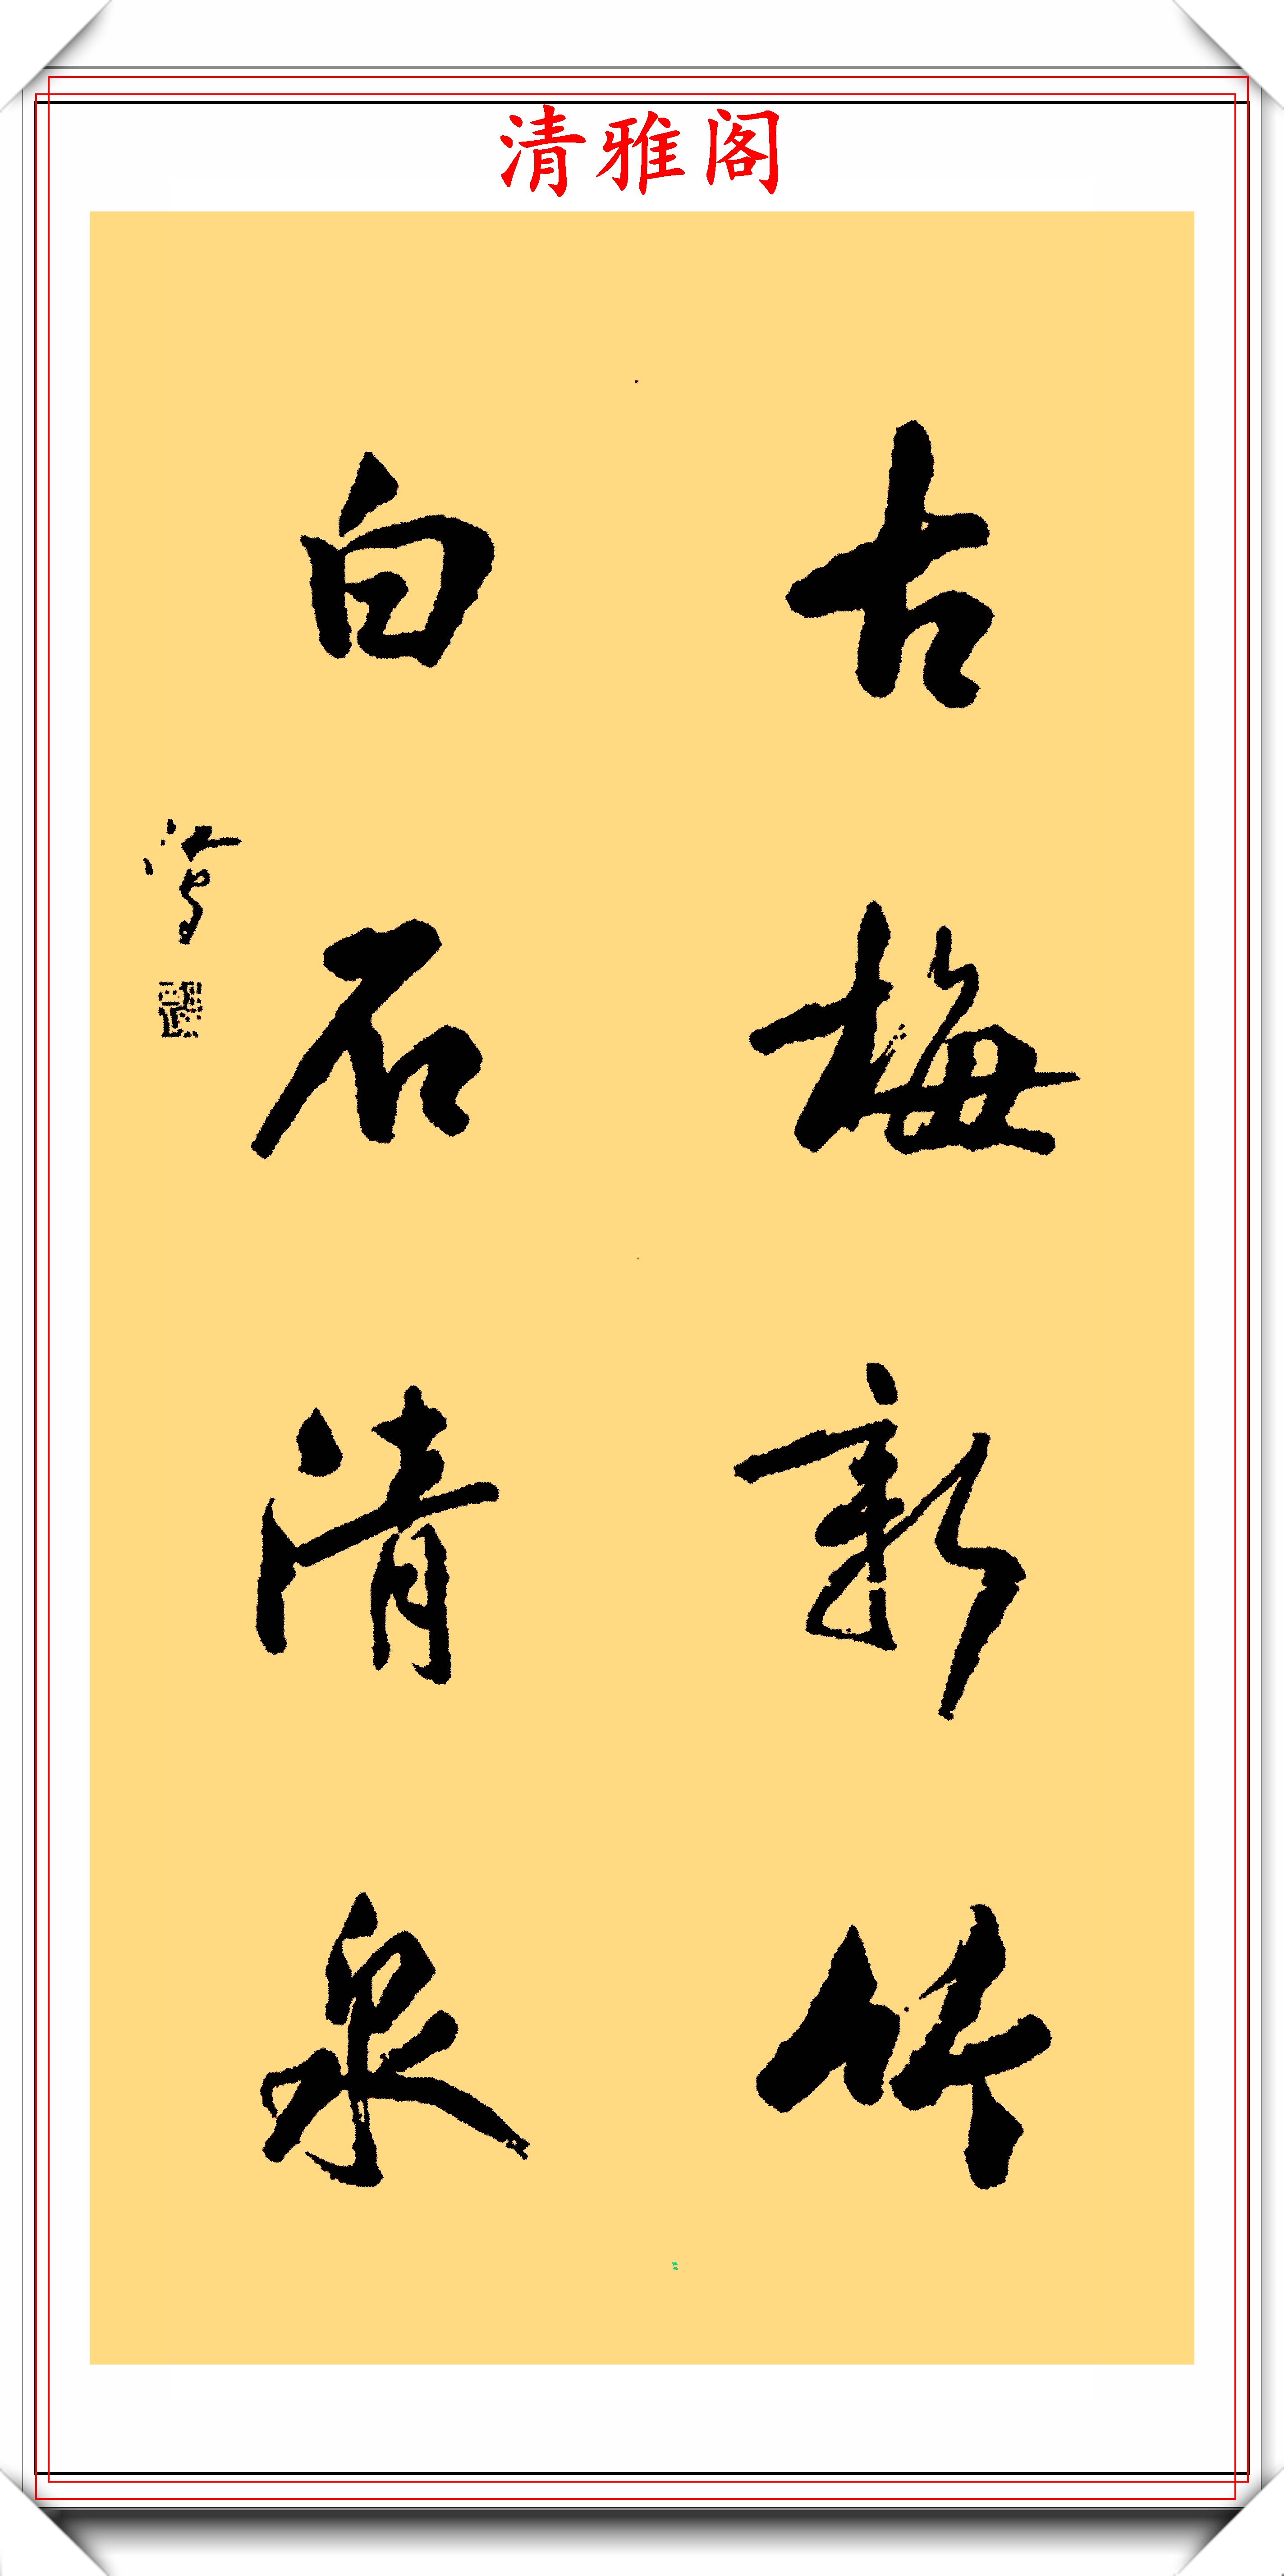 清雅阁
古梅新竹
白石清泉